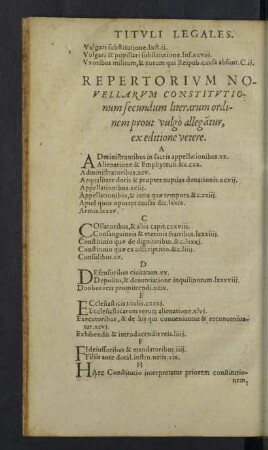 TITVLI LEGALES.
Vulgari substitutione. Inst. ij.
Vulgari & pupillari substitutione. Inf. xxviij.
Vxoribus militum, & eorum qui Reipub. causa absunt. C. ij.
REPERTORIVM NO-
VELLARVM CONSTITVTIO-
num secundum literarum ordi-
nem prout vulgò allegãtur,
ex editione vetere.
A
ADministrantibus in sacris appellationibus. xx.
Alienatione & Emphyteusi. &c. cxx.
Administratoribus. xcv.
Aequalitate dotis & propter nuptias donationis. xcvij.
Appellationibus. xciij.
Appellationibus, & intra quæ tempora. &c. xxiij.
Apud quos oportet causas dic. lxxix.
Armis. lxxxv.
C
COllatoribus, & aliis capit. cxxviij.
Consanguineis & vterinis fratribus. lxxxiiij.
Constitutio quæ de dignitatibus. &c. lxxxj.
Constitutio quæ ex adscriptitio. &c. liiij.
Consulibus. cv.
D
DEfensoribus ciuitatum. xv.
Deposito, & denuntiatione inquilinorum. lxxxviij.
Duobus reis promittendi. xcix.
E
ECclesiasticis titulis. cxxxj.
Ecclesiasticarum rerum alienatione. xlvj.
Executoribus, & de his qui conueniuntur & reconuenian-
tur. xcvj.
Exhibendis & introducendis reis. liij.
F
FIdeiussoribus & mandatoribus. iiij.
Filii ante dotal. instru. natis. xix.
H
HAec Constitutio interpretatur priorem constitutio-
nem,